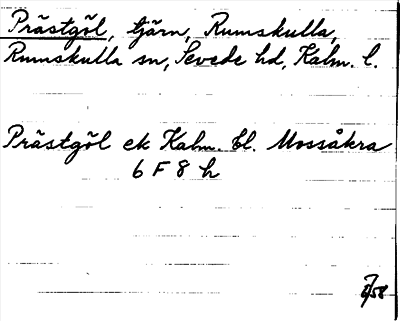 Prästgöl, tjärn, Rumskulla,
Rumskulla sn, Sevede hd, Kalm. l.
Prästgöl ek Kalm. bl. Mossåkra
6 F 8 h